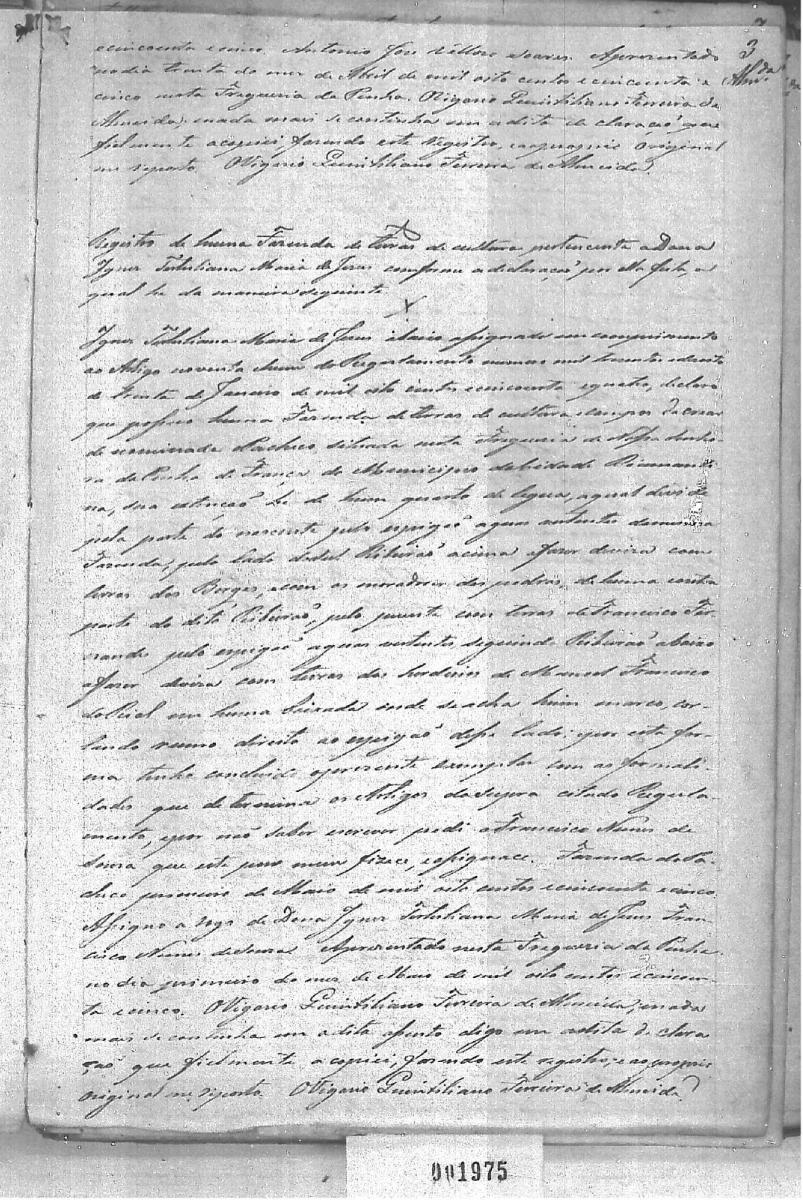 3
Almda
ecincoenta ecinco. Antonio Jose Vellozo Soares. Aprezentado
nodia trinta do mez de Abril de mil oito centos ecincoenta e
cinco nesta Freguezia da Penha. OVigario Quintiliano Ferreira de
Almeida; enada mais se continha em a dita declaração, que
fielmente acopiei, fazendo este Registro, eaoproprio original
me reporto. OVigario Quintiliano Ferreira de Almeida.
Registro de huma Fazenda de terras de cultura pertencente aDona
Ignez Tertuliana Maria de Jesus conforme adeclaração por Ella feita, a
qual he da maneira seguinte
Ignez Tertuliana Maria de Jesus abaixo assignada em comprimento
ao Artigo noventa ehum do Regulamento numero mil trezentos edezoito
de trinta de Janeiro de mil oito centos ecincoenta equatro, declaro
que possuo huma Fazenda de terras de cultura ecampos de crear
denominada Pacheco, situada nesta Freguezia de Nossa Senho-
ra da Penha de França do Municipio da Cidade Diamanti
na, sua extenção he de hum quarto de legua, aqual devi de
pela parte do nascente pelo espigão aguas vertentes damesma
Fazenda, pelo lado do Sul Ribeirão acima afazer deviza com
terras dos Borges, ecom os moradores das pedras, de huma eoutra
parte do dito Ribeirão, pelo poente com terras de Francisco Fer-
nandes pelo espigão aguas vertentes seguindo Ribeirão abaixo
afazer deviza com terras dos herdeiros de Manoel Francisco
do em huma baixada onde se acha hum marco, cor-
tando rumo direito ao espigão desse lado; epor esta for-
ma tenho concluido opresente exemplar com as formali-
dades que determina os Artigos do supra citado Regula-
mento, epor não saber escrever pedi a Francisco Nunes de
Souza que este por mim fizece, eassignace. Fazenda do Pa-
checo primeiro de Maio de mil oito centos ecincoenta ecinco
Assigno a rogo de Dona Ignez Tertuliana Maria de Jesus Fran-
cisco Nunes de Souza. Aprezentado nesta Freguezia da Penha
no dia primeiro do mez de Maio de mil oito centos ecincoen-
ta ecinco. OVigario Quintiliano Ferreira de Almeida; enada
mais se continha em adita digo em adita de clara
ção que fielmente acopiei, fazendo este registro, eao proprio
original me reporto. OVigario Quintiliano Ferreira de Almeida
001975